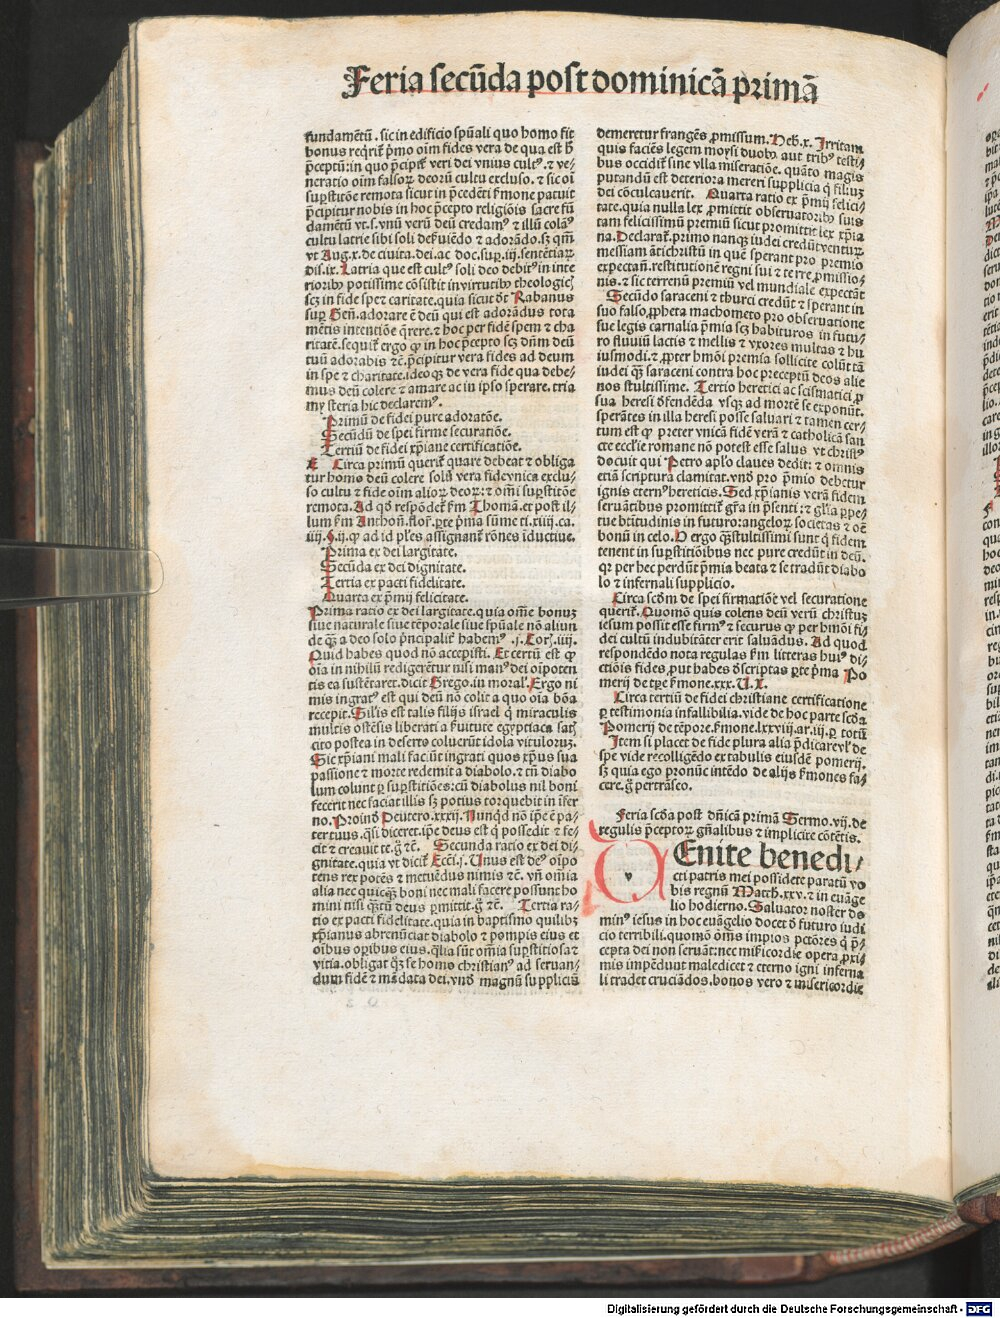 Feria secūda post dominicā primā
fundamētū. sic in edificio spūali quo homo fit
bonus reqrit pͥmo oīm fides vera de qua est h̄
p̄ceptū: in quo p̄cipit veri dei vnius cultꝰ. ⁊ ve/
neratio oīm falsoꝝ deorū cultu excluso. ⁊ sic oī
suꝑstitōe remota sicut in p̄cedēti s̄mone patuit
p̄cipitur nobis in hoc p̄cepto religiōis sacre fū
damētū vt .s. vnū verū deū credamꝰ ⁊ illū colāꝰ
cultu latrie sibi soli def̄uiēdo ⁊ adorādo. sꝫ qm̄
vt Aug. x. de ciuita. dei. ac doc. suꝑ. iij. sentētiaꝝ
dis. ix. Latria que est cultꝰ soli deo debitꝰ in inte
rioribꝰ potissime cōsistit in virtutibꝰ theologic̄
scꝫ in fide spe ⁊ caritate. quia sicut dt̄ Rabanus
suꝑ Gen̄. adorare ē deū qui est adorādus tota
mētis intentiōe q̄rere. ⁊ hoc per fidē spem ⁊ cha
ritatē. sequit̄ ergo ꝙ in hoc p̄cepto scꝫ dūm deū
tuū adorabis ⁊c̄. p̄cipitur vera fides ad deum
in spe ⁊ charitate. ideo qꝫ de vera fide qua debe/
mus deū colere ⁊ amare ac in ipso sperare. tria
mysteria hic declaremꝰ.
Primū de fidei pure adoratōe.
Secūdū de spei firme securatiōe.
Tertiū de fidei xp̄iane certificatiōe.
Circa primū querit̄ quare debeat ⁊ obliga
tur homo deū colere solū vera fide vnica exclu/
so cultu ⁊ fide oīm alioꝝ deoꝝ: ⁊ om̄i suꝑstitōe
remota. Ad qd̄ respōdet̄ s̄m Thomā. et post il/
lum s̄m Anthoñ. floř. ꝑte pͥma sūme ti. xiiij. ca.
iiij. §. ij. ꝙ ad id ples assignant̄ rōnes iductiue.
Prima ex dei largitate.
Secūda ex dei dignitate.
Tertia ex pacti fidelitate.
Quarta ex p̄mij felicitate.
Prima ratio ex dei largitate. quia om̄e bonuꝫ
siue naturale siue tēporale siue spūale nō aliun
de qꝫ a deo solo pͥncipalit̄ habemꝰ .j. Corꝭ. iiij.
Quid habes quod nō accepisti. Et certū est ꝙ
oīa in nihilū redigerētur nisi manꝰ dei oīpoten
tis ea sustētaret. dicit Grego. in moralꝭ. Ergo ni
mis ingratꝰ est qui deū nō colit a quo oīa bōa
recepit. Silꝭis est talis filijs israel q̄ miraculis
multis ostēsis liberati a s̄uitute egyptiaca satꝭ
cito postea in deserto coluerūt idola vituloruꝫ.
Sic xp̄iani mali faciūt ingrati quos xp̄us sua
passione ⁊ morte redemit a diabolo. ⁊ tn̄ diabo
lum colunt ꝑ suꝑstitiōes: cū diabolus nil boni
fecerit nec faciat illis sꝫ potius torquebit in īfer
no. Proinō Deutero. xxxij. Nunqd̄ nō ip̄e ē pa/
ter tuus. q̄si diceret. ip̄e deus est q̄ possedit ⁊ fe/
cit ⁊ creauit te. ḡ ⁊c̄. Secunda ratio ex dei di/
gnitate. quia vt dicit̄ Ecc̄i. j. Vnus est deꝰ oīpo
tens rex potēs ⁊ metuēdus nimis ⁊c̄. vn̄ om̄ia
alia nec quicqꝫ boni nec mali facere possunt ho
mini nisi q̄tū deus ꝑmittit. ḡ ⁊c̄. Tertia ra/
tio ex pacti fidelitate. quia in baptismo quilibꝫ
xp̄ianus abrenūciat diabolo ⁊ pompis eius et
oībus oꝑibus eius. q̄lia sūt om̄ia suꝑstitiosa ⁊
vitia. obligat qꝫ se homo christianꝰ ad seruan/
dum fidē ⁊ mādata dei. vnō magnū supplicis
demeretur frangēs ꝓmissum. Heb. x. Irritam
quis faciēs legem moysi duobꝰ aut tribꝰ testi/
bus occidit̄ sine vlla miseratiōe. quāto magis
putandū est deteriora mereri supplicia q̄ filiuꝫ
dei cōculcauerit. Quarta ratio ex p̄mij felici/
tate. quia nulla lex ꝓmittit obseruatoribꝰ suis
tam felicissimū premiū sicut promittit lex xp̄ia
na. Declarat̄. primo nanqꝫ iudei credūt venturꝫ
messiam āti christū in quē sperant pro premio
expectan̄. restitutionē regni sui ⁊ terre ꝓmissio/
nis. ⁊ sic terrenū premiū vel mundiale expectāt
Secūdo saraceni ⁊ thurci credūt ⁊ sperant in
suo falso ꝓpheta machometo pro obseruatione
sue legis carnalia pͥmia scꝫ habituros in futu/
ro fluuiū lactis ⁊ mellis ⁊ vxores multas ⁊ hu
iusmodi. ⁊ ꝓpter hmōi premia sollicite colūt tā
iudei qꝫ saraceni contra hoc preceptū deos alie
nos stultissime. Tertio heretici ac scismatici ꝑ
sua heresi dfendēda vsqꝫ ad mortē se exponūt.
sperātes in illa heresi posse saluari ⁊ tamen cer/
tum est ꝙ preter vnicā fidē verā ⁊ catholicā san
cte eccl̄ie romane nō potest esse salus vt christꝰ
docuit qui Petro apl̄o claues dedit: ⁊ omnis
etiā scriptura clamitat. vnō pro pͥmio debetur
ignis eternꝰ hereticis. Sed xp̄ianis verā fidem
seruātibus promittit̄ gr̄a in pͥsenti: ⁊ gl̄ia ꝑpe/
tue btītudinis in futuro: angeloꝝ societas ⁊ oē
bonū in celo. O ergo q̄ stultissimi sunt q̄ fidem
tenent in suꝑstitiōibus nec pure credūt in deū.
qꝛ per hec perdūt pͥmia beata ⁊ se tradūt diabo
lo ⁊ infernali supplicio.
Circa scd̄m de spei firmatiōe vel securatione
querit̄. Quomō quis colens deū verū christuꝫ
iesum possit esse firmꝰ ⁊ securus ꝙ per hmōi fi/
dei cultū indubitāter erit saluādus. Ad quod
respondēdo nota regulas s̄m litteras huiꝰ di/
ctiōis fides. put habes dscriptas ꝑte pͥma Po
merij de tꝑe s̄mone. xxx. V. X.
Circa tertiū de fidei christiane certificatione
ꝑ testimonia infallibilia. vide de hoc parte scd̄a
Pomerij de tēpore. s̄mone. lxxviij. ar. iij. ꝑ totū
Item si placet de fide plura alia pͥdicare vl̓ de
spe vide recolligēdo ex tabulis eiusdē pomerij.
sꝫ quia ego pronūc intēdo de alijs s̄mones fa/
cere. ḡ pertrāseo.
Feria scd̄a post dn̄icā primā Sermo. vij. de
regulis p̄ceptoꝝ gn̄alibus ⁊ implicite cōtētis.
VEnite benedi/
cti patris mei possidete paratū vo
bis regnū Matth. xxv. ⁊ in euāge
lio hodierno. Saluator noster do
minꝰ iesus in hoc euāgelio docet d futuro iudi
cio terribili. quomō om̄s impios pctōres q̄ p̄/
cepta dei non seruāt: nec mis̄icordie opera ꝓxi
mis impēdunt maledicet ⁊ eterno igni inferna
li tradet cruciādos. bonos vero ⁊ misericordie
Digitalisierung gefördert durch die Deutsche Forschungsgemeinschaft - DFG